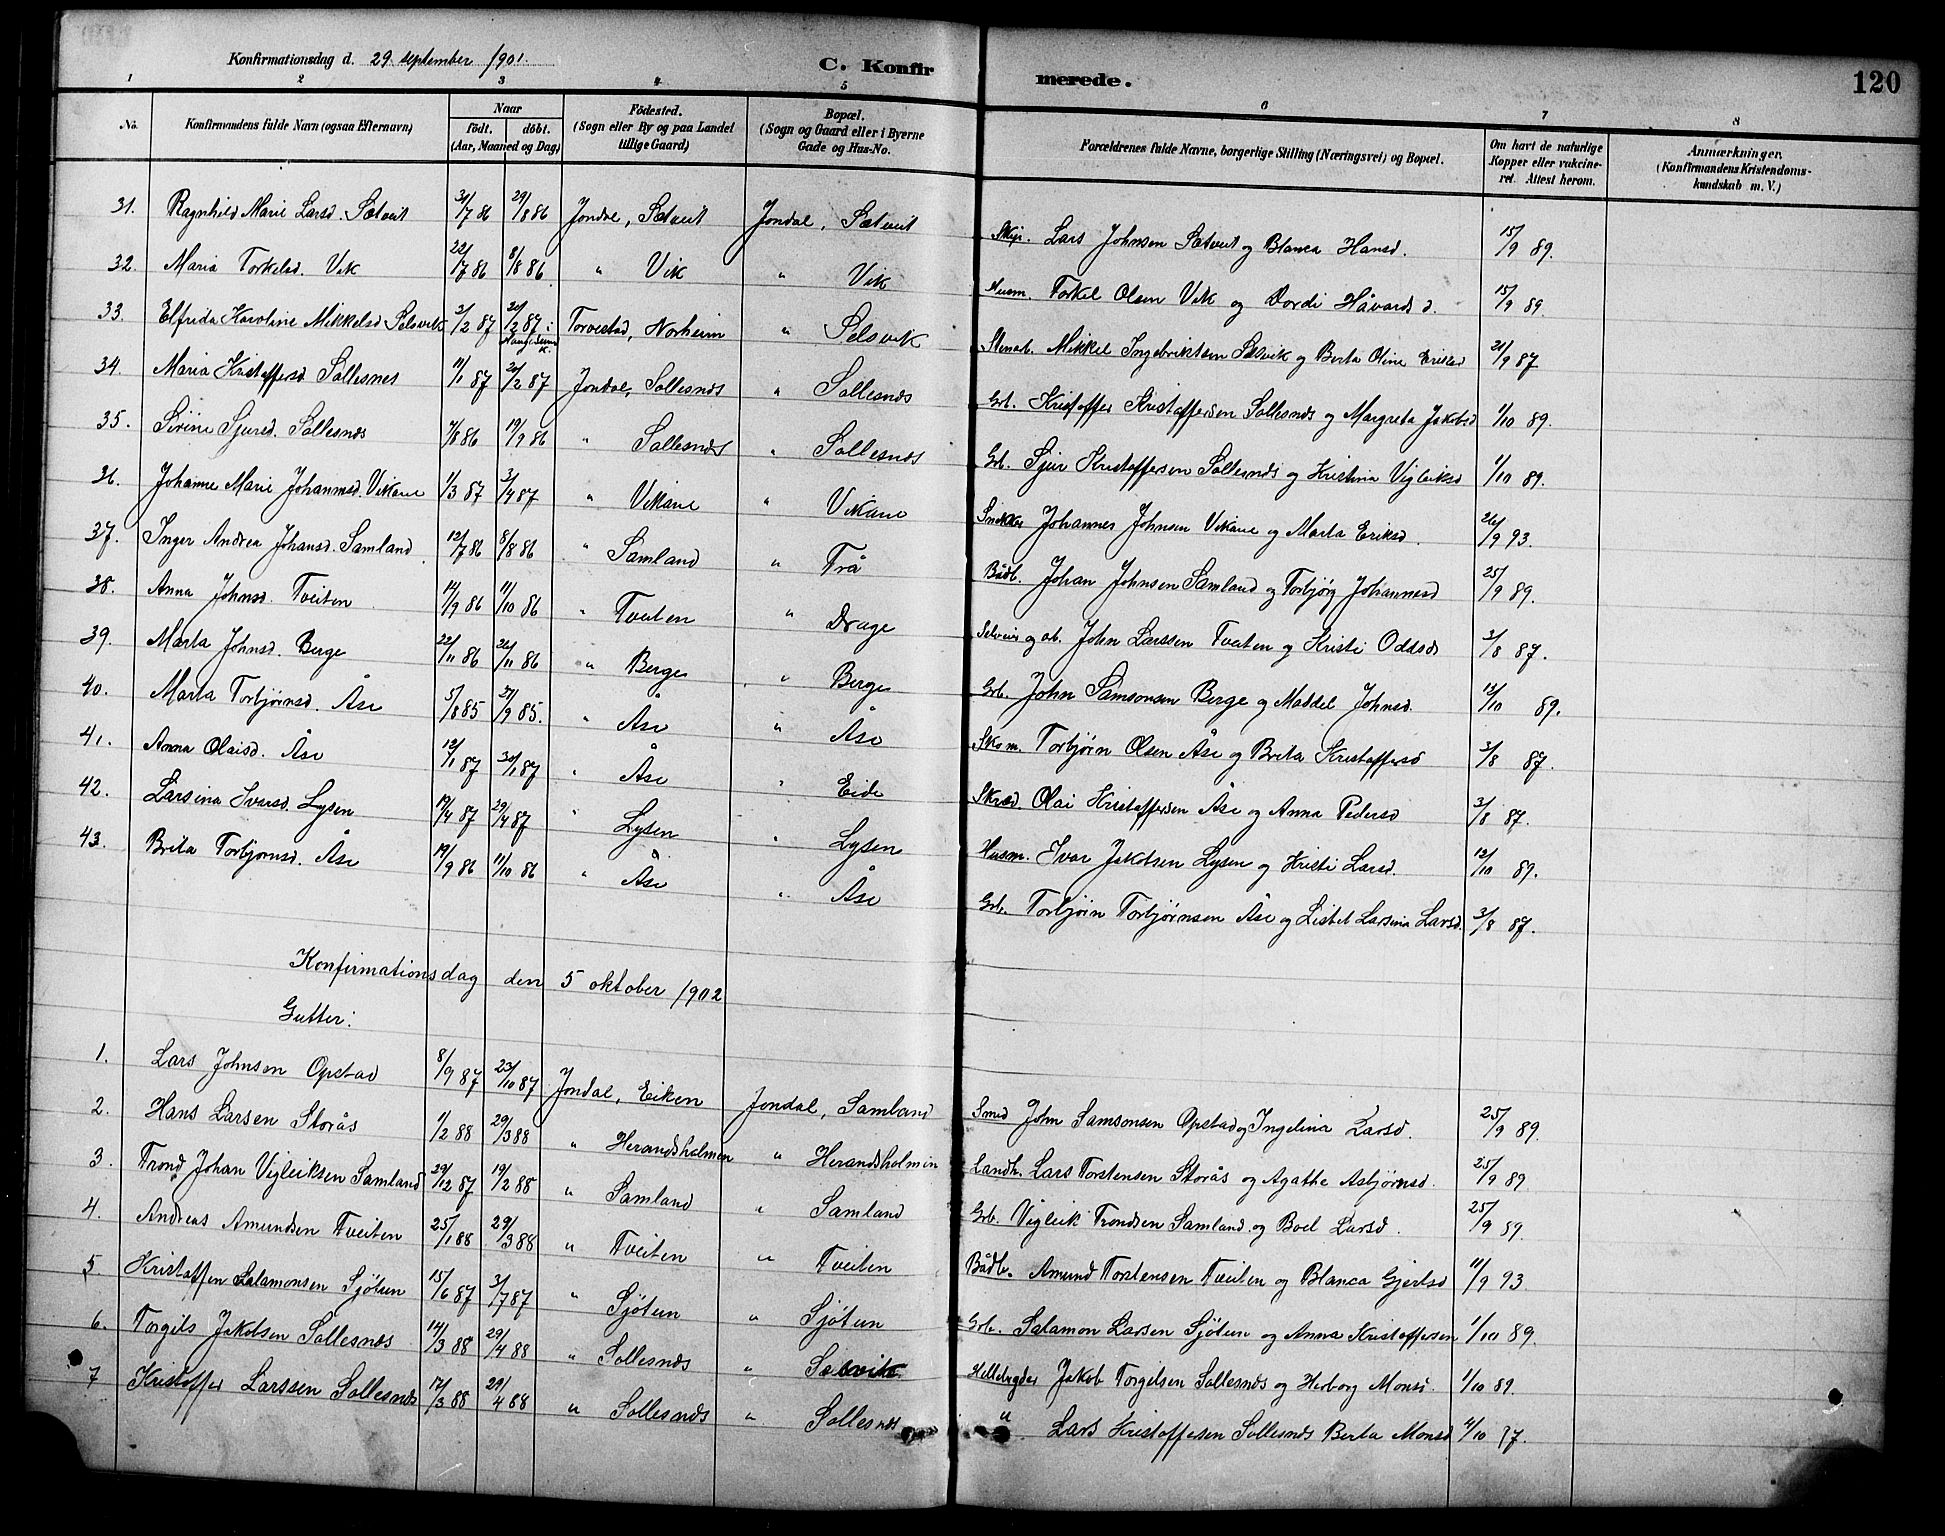 Konfirmationsdag d. 29 september 1901. C. Konfirmerede. 120
1 2 3 4 5 6 7 8
No. Konfirmandens fulde Navn (ogsaa Efternavn) Naar født. døbt. (Aar, Maaned og Dag) Fødested. (Sogn eller By og paa Landet tillige Gaard) Bopæl. (Sogn og Gaard eller i Byerne Gade og Hus-No. Forældrenes fulde Navne, borgerlige Stilling (Næringsvei) og Bopæl. Om havt de naturlige Kopper eller vakcineret. Attest herom. Anmærkninger. (Konfirmandens Kristendomskundskab m. V.)
31. Ragnhild Marie Larsd. Sætveit 31/7 86 29/8 86 Jondal, Sætveit Jondal, Sætveit Lars Johnsen Sætveit og Blanca Hansd. 15/9 89.
32. Maria Torkelsd. Vik 22/7 86 8/8 86 " Vik " Vik Husm. Torkel Olsen Vik og Dordi Håvardsd. 15/9 89.
33. Elfrida Karoline Mikkelsd Selsvik 2/2 87 20/2 87 i Torvestad, Norheim " Selsvik Mikkel Ingebriktsen Selsvik og Berta Oline Eriksd 21/9 87
34. Maria Kristoffersd Sollesnes 11/1 87 20/2 87 Jondal, Sollesnæs " Sollesnæs Grb. Kristoffer Kristoffersen Sollesnæs og Margreta Jakobsd 1/10 89.
35. Sirine Sjursd. Sollesnæs 7/8 86 19/9 86 " Sollesnæs " Sollesnæs Grb. Sjur Kristoffersen Sollesnæs og Kristina Vigleiksd 1/10 89.
36. Johanne Marie Johannesd. Vikane 1/3 87 3/4 87 " Vikane " Vikane Snekker Johannes Johnsen Vikane og Marta Eriksd. 26/9 93.
37. Inger Andrea Johansd. Samland 12/7 86 8/8 86 " Samland " Trå Bådb. Johan Johnsen Samland og Torbjørg Johannesd 25/9 89.
38. Anna Johnsd. Tveiten 14/9 86 11/10 86 " Tveiten " Drage Selveier og ab. John Larssen Tveiten og Kristi Oddsd 3/8 87.
39. Marta Johnsd. Berge 22/11 86 26/11 86 " Berge " Berge Grb. John Samsonsen Berge og Maddel Johnsd. 13/10 89.
40. Marta Torbjørnsd. Åse 5/8 85 27/9 85. " Åse " Åse Skom. Torbjørn Olsen Åse og Brita Kristoffersd 3/8 87.
41. Anna Olaisd. Åse 12/1 87 30/1 87 " Åse " Eide Skræd. Olai Kristoffersen Åse og Anna Pedersd 3/8 87.
42. Larsina Ivarsd. Lysen 17/4 87 29/4 87 " Lysen " Lysen Husm. Ivar Jakobsen Lysen og Kristi Larsd. 12/10 89.
43. Brita Torbjørnsd. Åse 19/9 86 11/10 86 " Åse " Åse Grb. Torbjørn Torbjørnsen Åse og Listel Larsina Larsd. 3/8 87.
Konfirmationsdag den 5 oktober 1902
Gutter:
1. Lars Johnsen Opstad 8/9 87 23/10 87 Jondal, Eiken Jondal, Samland Smed John Samsonsen Opstad og Ingelina Larsd. 25/9 89.
2. Hans Larsen Storås 1/2 88 29/3 88 " Herandsholmen " Herandsholmen Landh. Lars Torstensen Storås og Agathe Asbjørnsd. 25/9 89.
3. Trond Johan Vigleiksen Samland 29/12 87 19/2 88 " Samland " Samland Grb. Vigleik Trondsen Samland og Boel Larsd. 25/9 89.
4. Andreas Amundsen Tveiten 25/1 88 29/3 88 " Tveiten " Tveiten Bådb. Amund Torstensen Tveiten og Blanca Gjertsd 11/9 93.
5. Kristoffen Salamonsen Sjötun 15/6 87 3/7 87 " Sjötun " Sjötun Grb. Salamon Larsen Sjötun og Anna Kristoffersen 1/10 89.
6. Torgils Jakobsen Sollesnæs 14/3 88 29/4 88 " Sollesnæs " Selsvik Hellebryder Jakob Torgilsen Sollesnæs og Herborg Monsd. 1/10 89.
7 Kristoffer Larssen Sollesnæs 17/3 88 29/4 88 " Sollesnæs " Sollesnæs " Lars Kristoffersen Sollesnæs Berta Monsd 4/10 87.